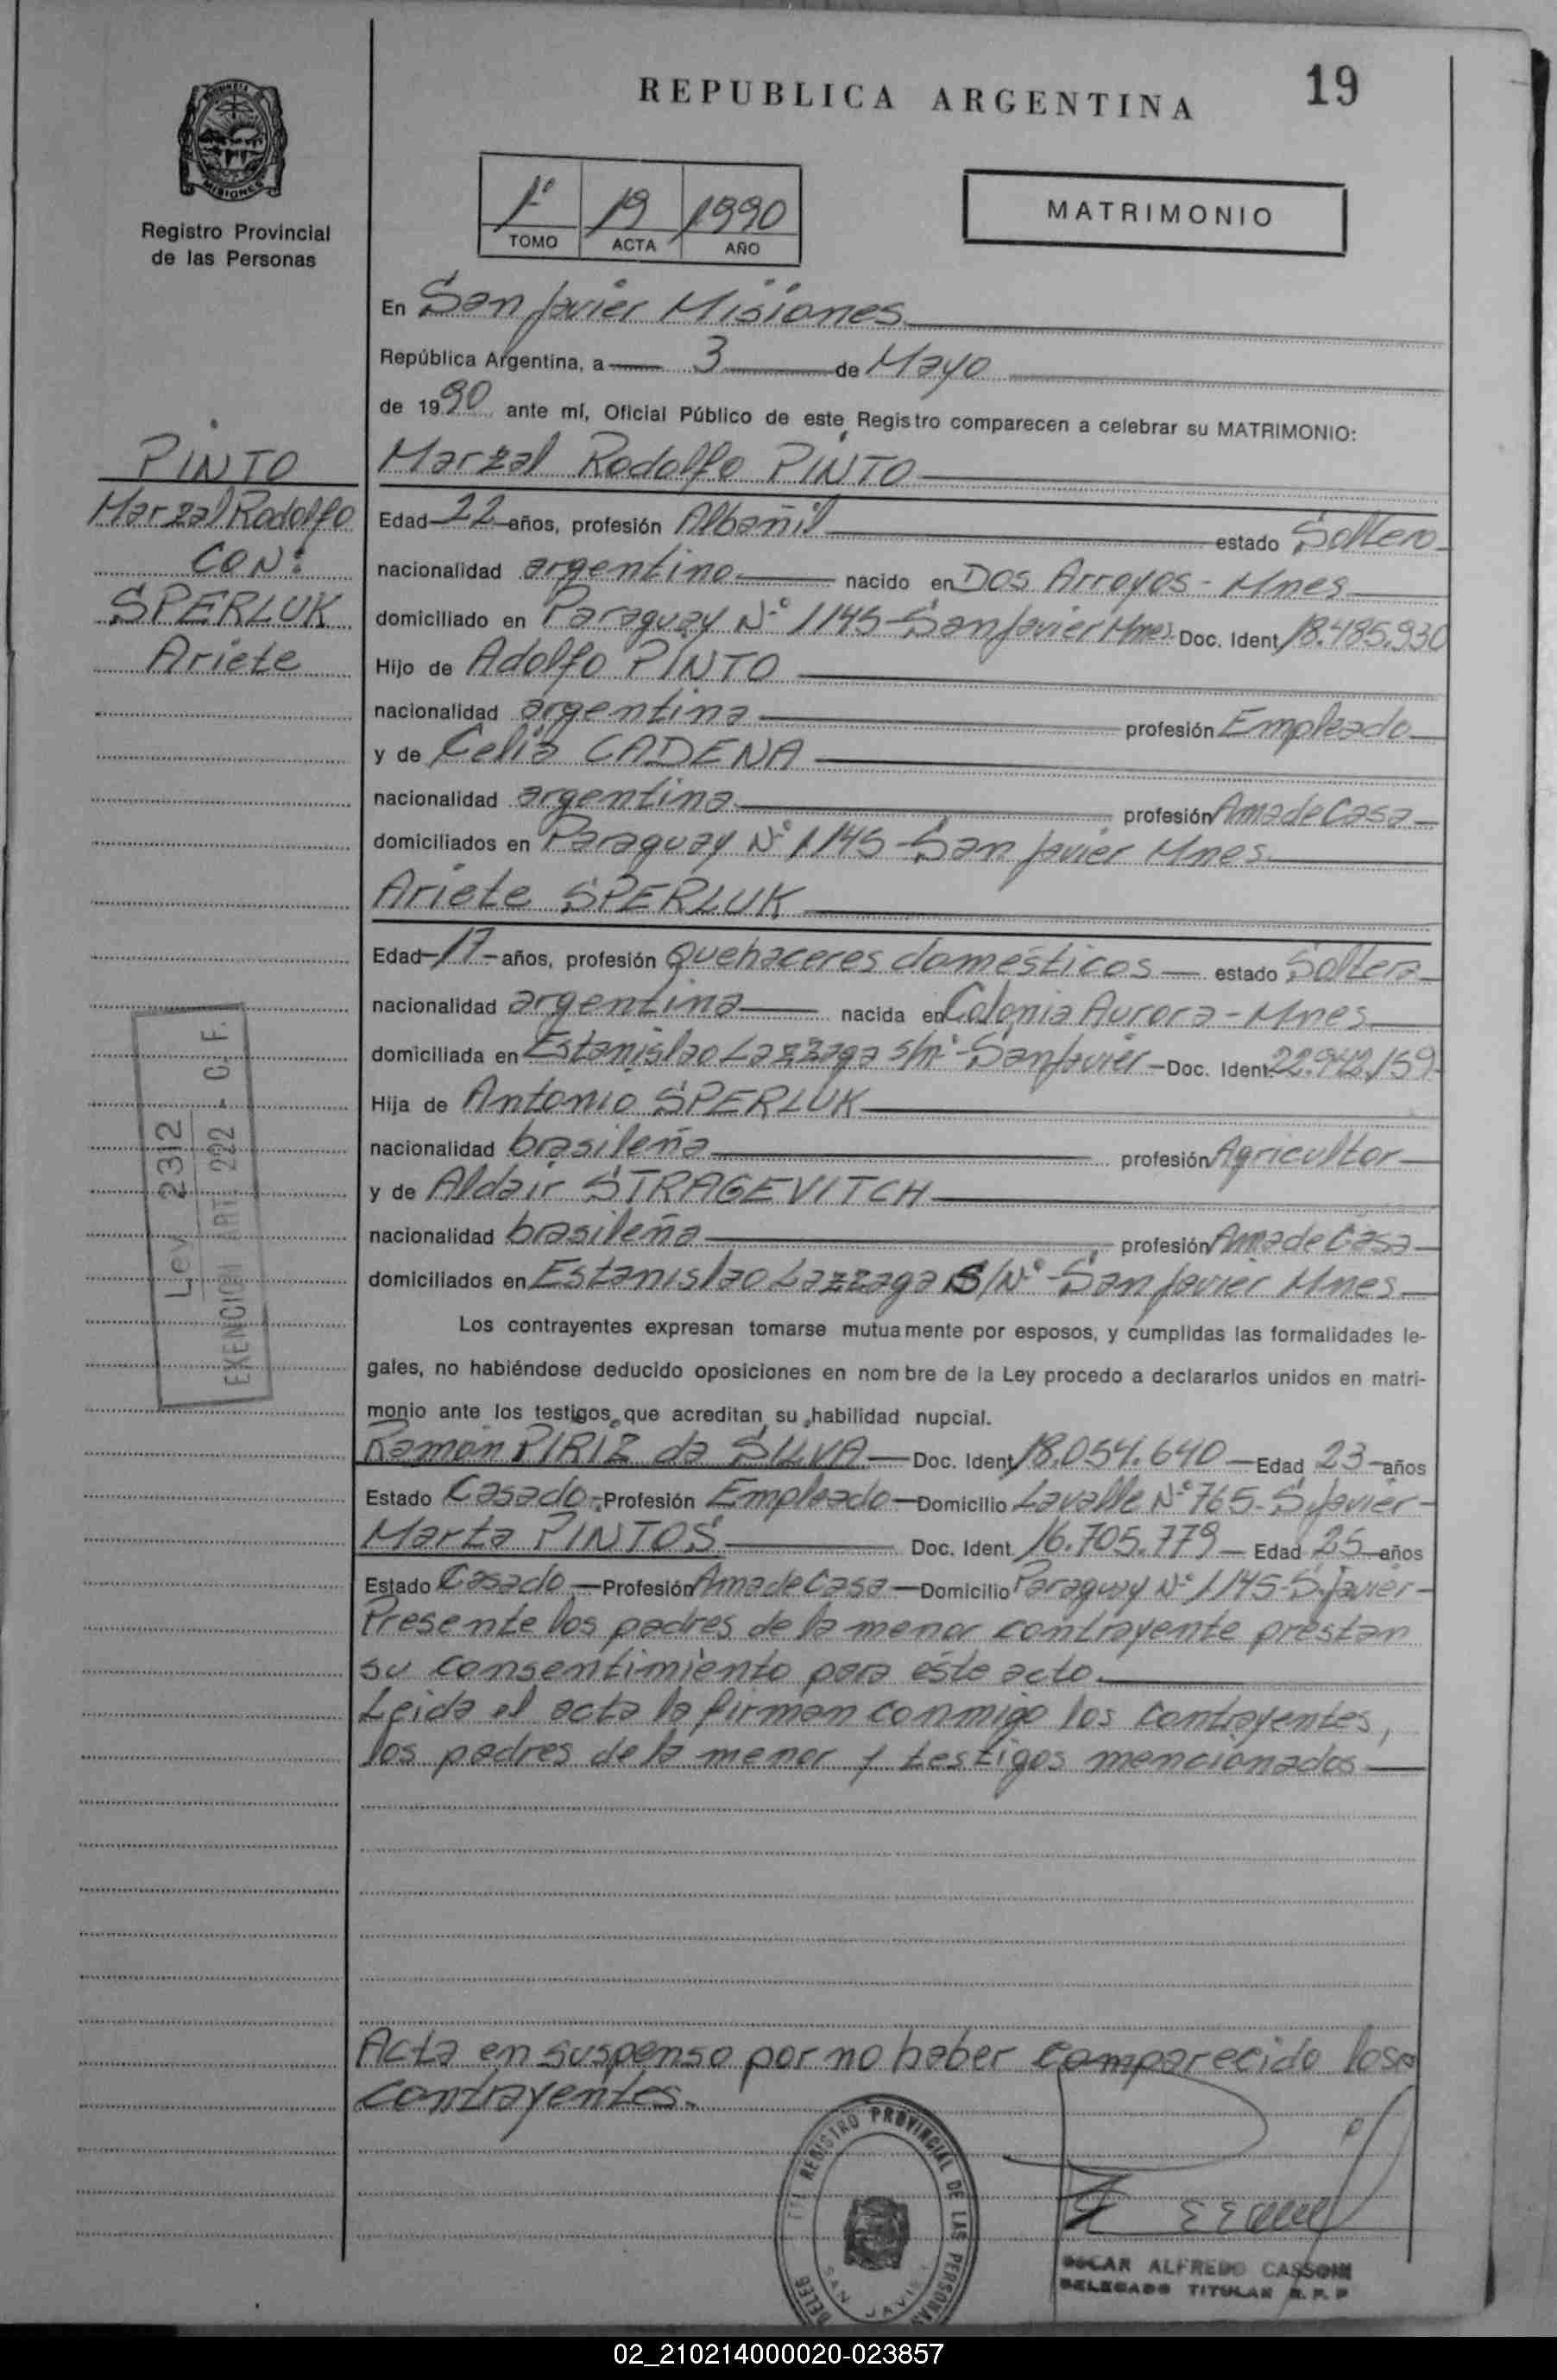 REPUBLICA ARGENTINA
19
MISIONES
Registro Provincial
de las Personas
1º 19 1990
TOMO ACTA AÑO
MATRIMONIO
En San Javier Misiones
República Argentina, a 3 de Mayo
de 1990 ante mí, Oficial Público de este Registro comparecen a celebrar su MATRIMONIO:
PINTO
Marzal Rodolfo
CON:
SPERLUK
Ariete
Marzal Rodolfo PINTO
Edad 22 años, profesión Albañil estado Soltero
nacionalidad argentino nacido en Dos Arroyos - Mnes
domiciliado en Paraguay Nº 1145 - San Javier Mnes. Doc. Ident 18.485.930
Hijo de Adolfo PINTO
nacionalidad argentina profesión Empleado
y de Celia CADENA
nacionalidad argentina profesión Ama de Casa
domiciliados en Paraguay Nº 1145 - San Javier Mnes
Ariete SPERLUK
Edad 17 años, profesión Quehaceres domésticos estado Soltera
nacionalidad argentina nacida en Colonia Aurora - Mnes
domiciliada en Estanislao Lazzaga s/nº - San Javier - Doc. Ident. 22.942.159
Hija de Antonio SPERLUK
nacionalidad brasileña profesión Agricultor
y de Aldair STRAGEVITCH
nacionalidad brasileña profesión Ama de Casa
domiciliados en Estanislao Lazzaga S/Nº - San Javier Mnes
Los contrayentes expresan tomarse mutuamente por esposos, y cumplidas las formalidades le-
gales, no habiéndose deducido oposiciones en nombre de la Ley procedo a declararlos unidos en matri-
monio ante los testigos que acreditan su habilidad nupcial.
Ramón PIRIZ da SILVA - Doc. Ident 18.054.640 - Edad 23 años
Estado Casado - Profesión Empleado - Domicilio Lavalle Nº 765 - S. Javier -
Marta PINTOS Doc. Ident. 16.705.779 - Edad 25 años
Estado Casado - Profesión Ama de Casa - Domicilio Paraguay Nº 1145 - S. Javier -
Presente los padres de la menor contrayente prestan
su consentimiento para éste acto.
Leida el acta la firman conmigo los contrayentes,
los padres de la menor y testigos mencionados
Ley 2312
EXENCION ART. 222 - C. F.
Acta en suspenso por no haber comparecido los
contrayentes.
REGISTRO PROVINCIAL DE LAS PERSONAS
DELEG
SAN JAVIER
OSCAR ALFREDO CASSONI
DELEGADO TITULAR R. P. P
02_210214000020-023857